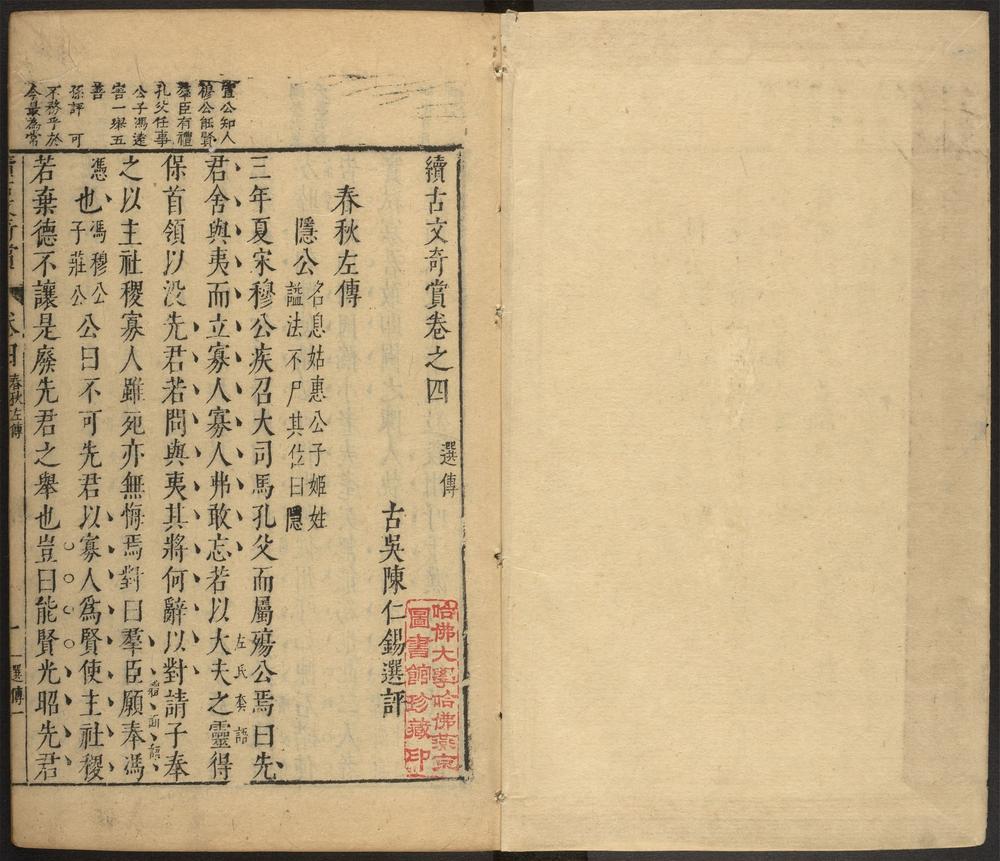 續古文奇賞卷之四
選傳
古吳陳仁錫選評
春秋左傳
隱公
名息姑惠公子姬姓
謚法不尸其位曰隱
三年夏宋穆公疾召大司馬孔父而屬殤公焉曰先
君舍與夷而立寡人寡人弗敢忘若以大夫之靈得
左氏套語
保首領以没先君若問與夷其將何辭以對請子奉
之以主社稷寡人雖死亦無悔焉對曰羣臣願奉馮
憑也
馮穆公
子莊公
公曰不可先君以寡人爲賢使主社稷
若棄德不讓是廢先君之舉也豈曰能賢光昭先君
宣公知人
穆公能賢
羣臣有禮
孔父任事
公子馮遠
害一舉五
善
孫評 可
不務乎於
今最為常
春秋左傳
一
選傳一
哈佛大學哈佛燕京
圖書館珍藏印